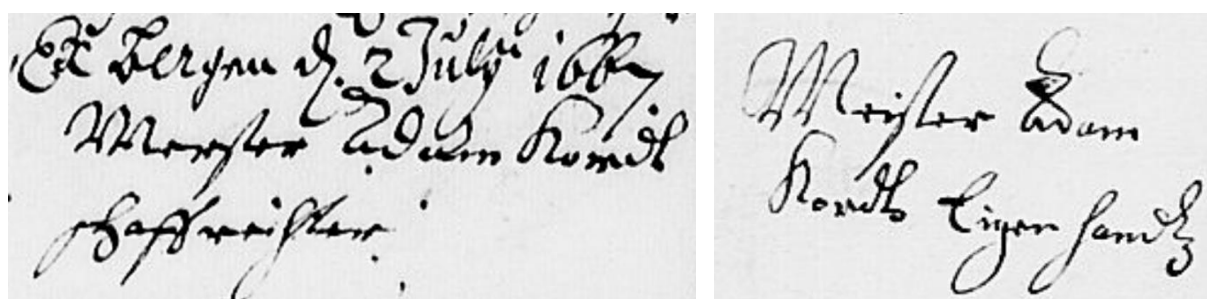 Ex Bergen d. 2 July 1667.
Mester Adam Kordt
schaffreichter.
Meister Adam
Kordts Eigen handtz